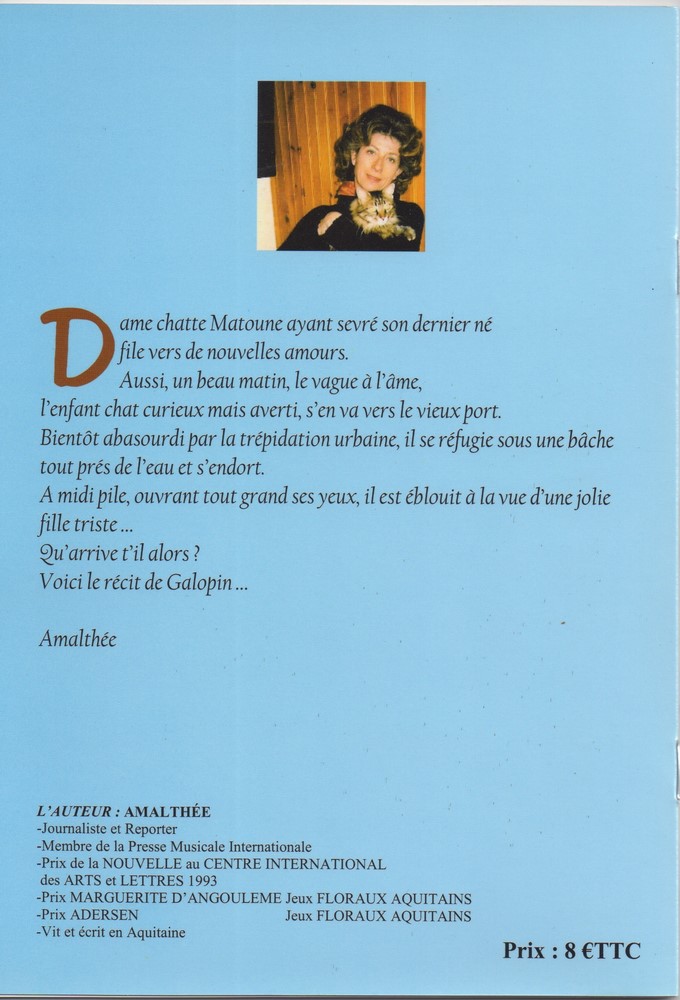 Dame chatte Matoune ayant sevré son dernier né
file vers de nouvelles amours.
Aussi, un beau matin, le vague à l'âme,
l'enfant chat curieux mais averti, s'en va vers le vieux port.
Bientôt abasourdi par la trépidation urbaine, il se réfugie sous une bâche
tout prés de l'eau et s'endort.
A midi pile, ouvrant tout grand ses yeux, il est éblouit à la vue d'une jolie
fille triste ...
Qu'arrive t'il alors ?
Voici le récit de Galopin ...
Amalthée
L'AUTEUR : AMALTHÉE
-Journaliste et Reporter
-Membre de la Presse Musicale Internationale
-Prix de la NOUVELLE au CENTRE INTERNATIONAL
des ARTS et LETTRES 1993
-Prix MARGUERITE D'ANGOULEME Jeux FLORAUX AQUITAINS
-Prix ADERSEN Jeux FLORAUX AQUITAINS
-Vit et écrit en Aquitaine
Prix : 8 €TTC